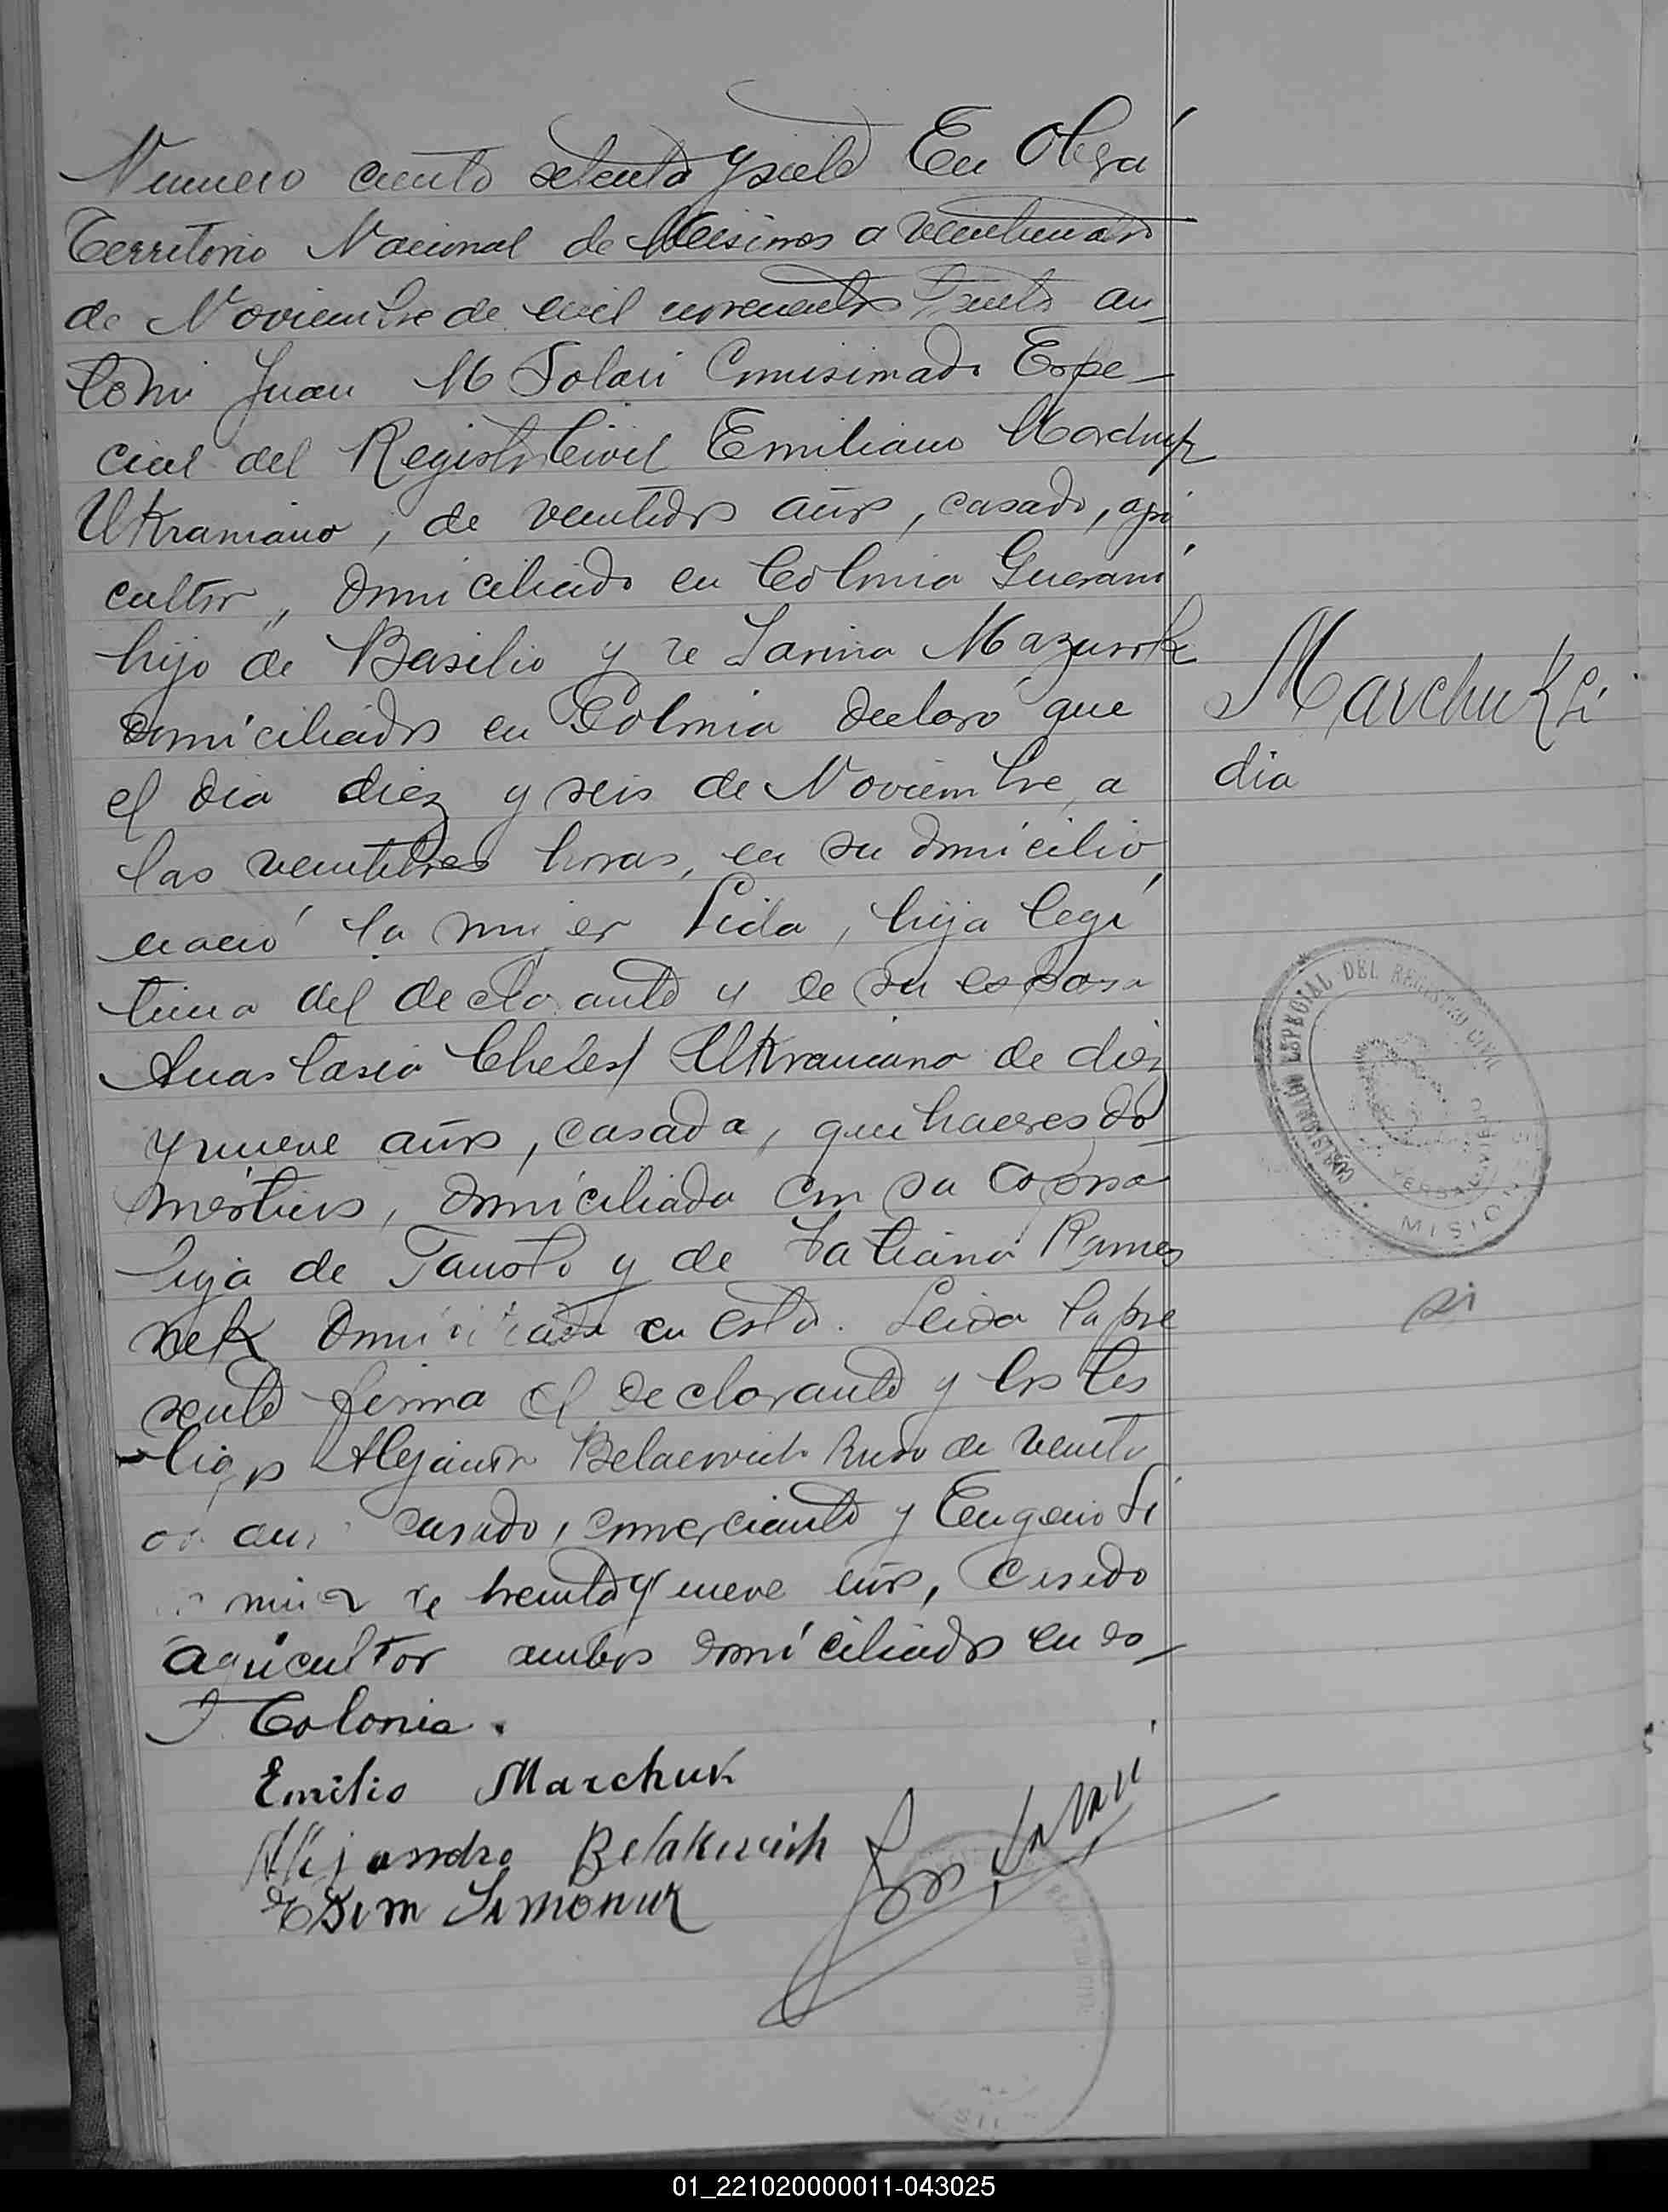 Numero ciento setenta y siete En Obera
Territorio Nacional de Misiones a veinticuatro
de Noviembre de mil novecientos treinta an
te mi Juan M Solari Comisionado Espe-
cial del Registro Civil Emiliano Marchuk
Ukraniano, de veintidos años, casado, agri
cultor, domiciliado en Colonia Guarani
hijo de Basilio y de Mazurok
domiciliados en Colonia declaró que
el dia diez y seis de Noviembre, a
las veintitres horas, en su domicilio
nació la mujer Lida, hija legi
tima del declarante y de su esposa
Anastasia Ukraniana de diez
y nueve años, casada, quehaceres do-
mesticos, domiciliada con su esposo
hija de Fausto y de Tatiana
domiciliada en esta. Leida la pre
sente firma el declarante y los tes
tigos Alejandro Belaewich Ruso de veinti
casado, comerciante y Eugenio Si
de treinta y nueve años, casado
agricultor ambos domiciliados en es-
T. Colonia.
Emilio Marchuk
Alejandro Belakevich
Simoniuk
Marchuk Li
dia
COMISIONADO ESPECIAL DEL REGISTRO CIVIL
MISIONES
si
01_221020000011-043025